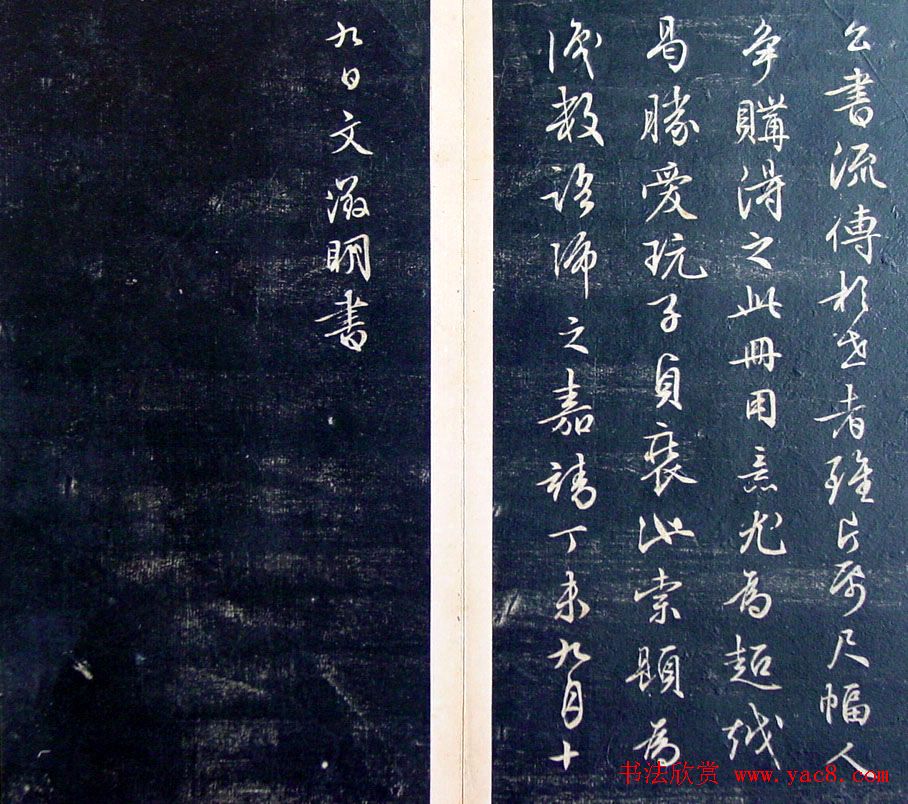 公書流傳於世者雖片紙尺幅人
争購得之此冊用意尤為超越
曷勝愛玩子貞裝此索題為
識数語歸之嘉靖丁未九月十
九日文徵明書
书法欣赏 www.yac8.com